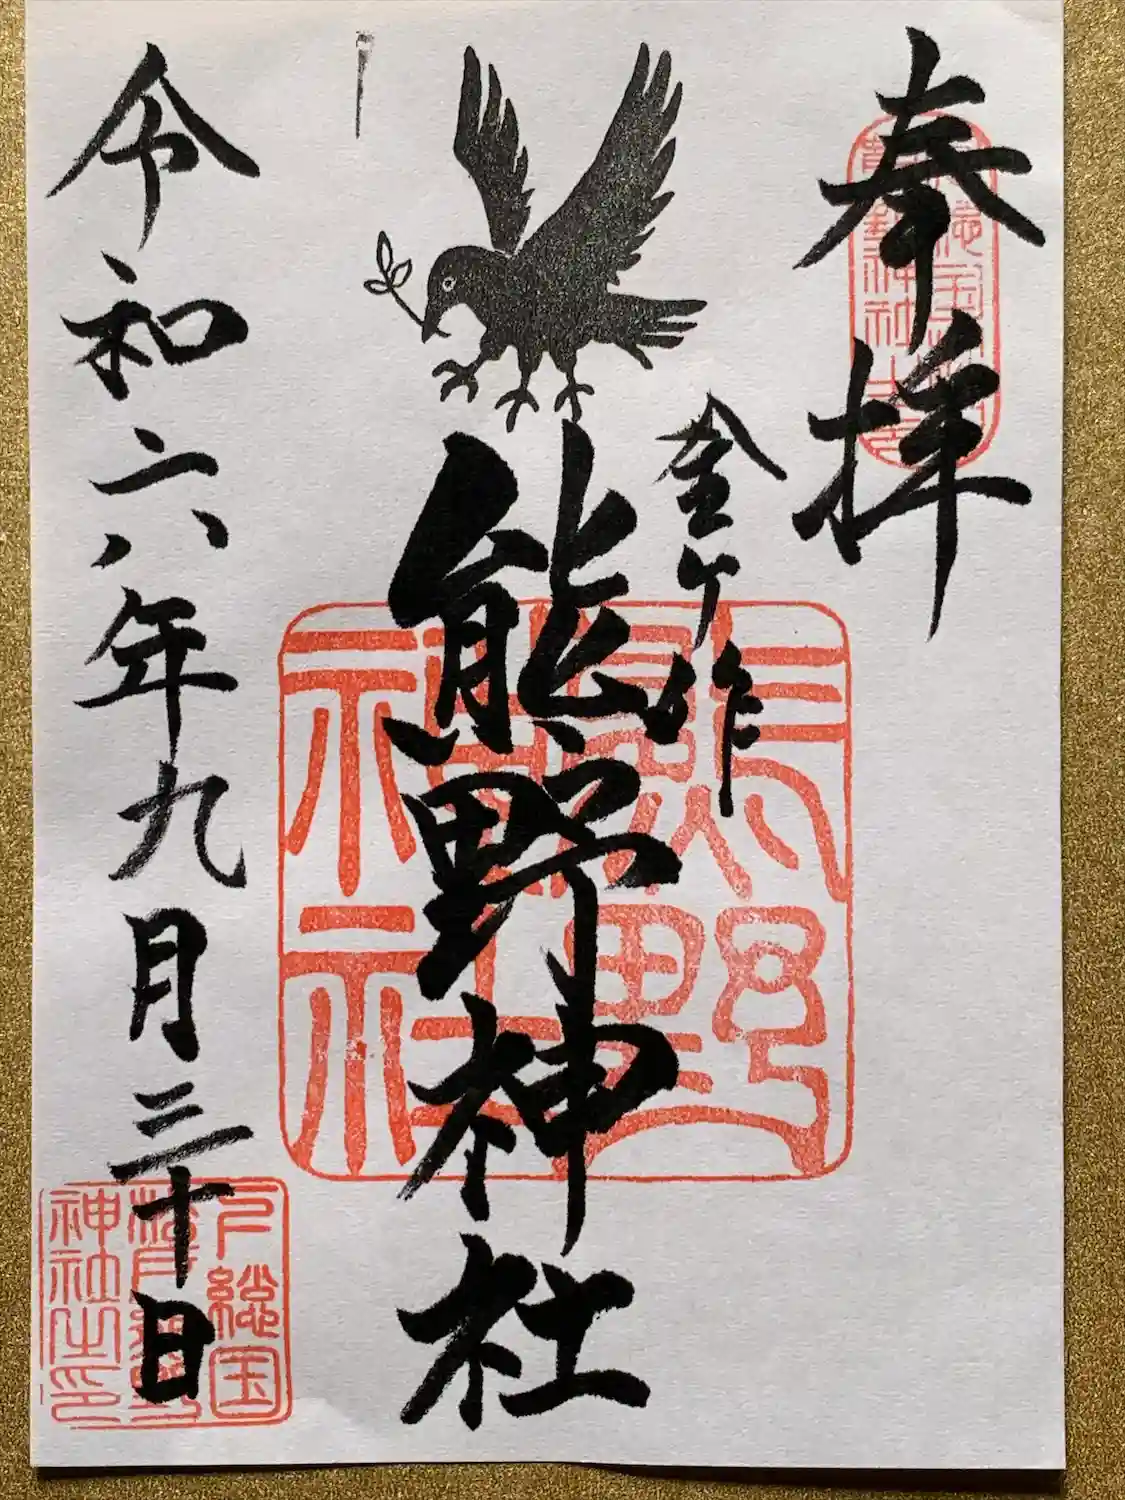 奉拝
金ケ作
熊野神社
令和六年九月三十日
熊野
神社
下総国